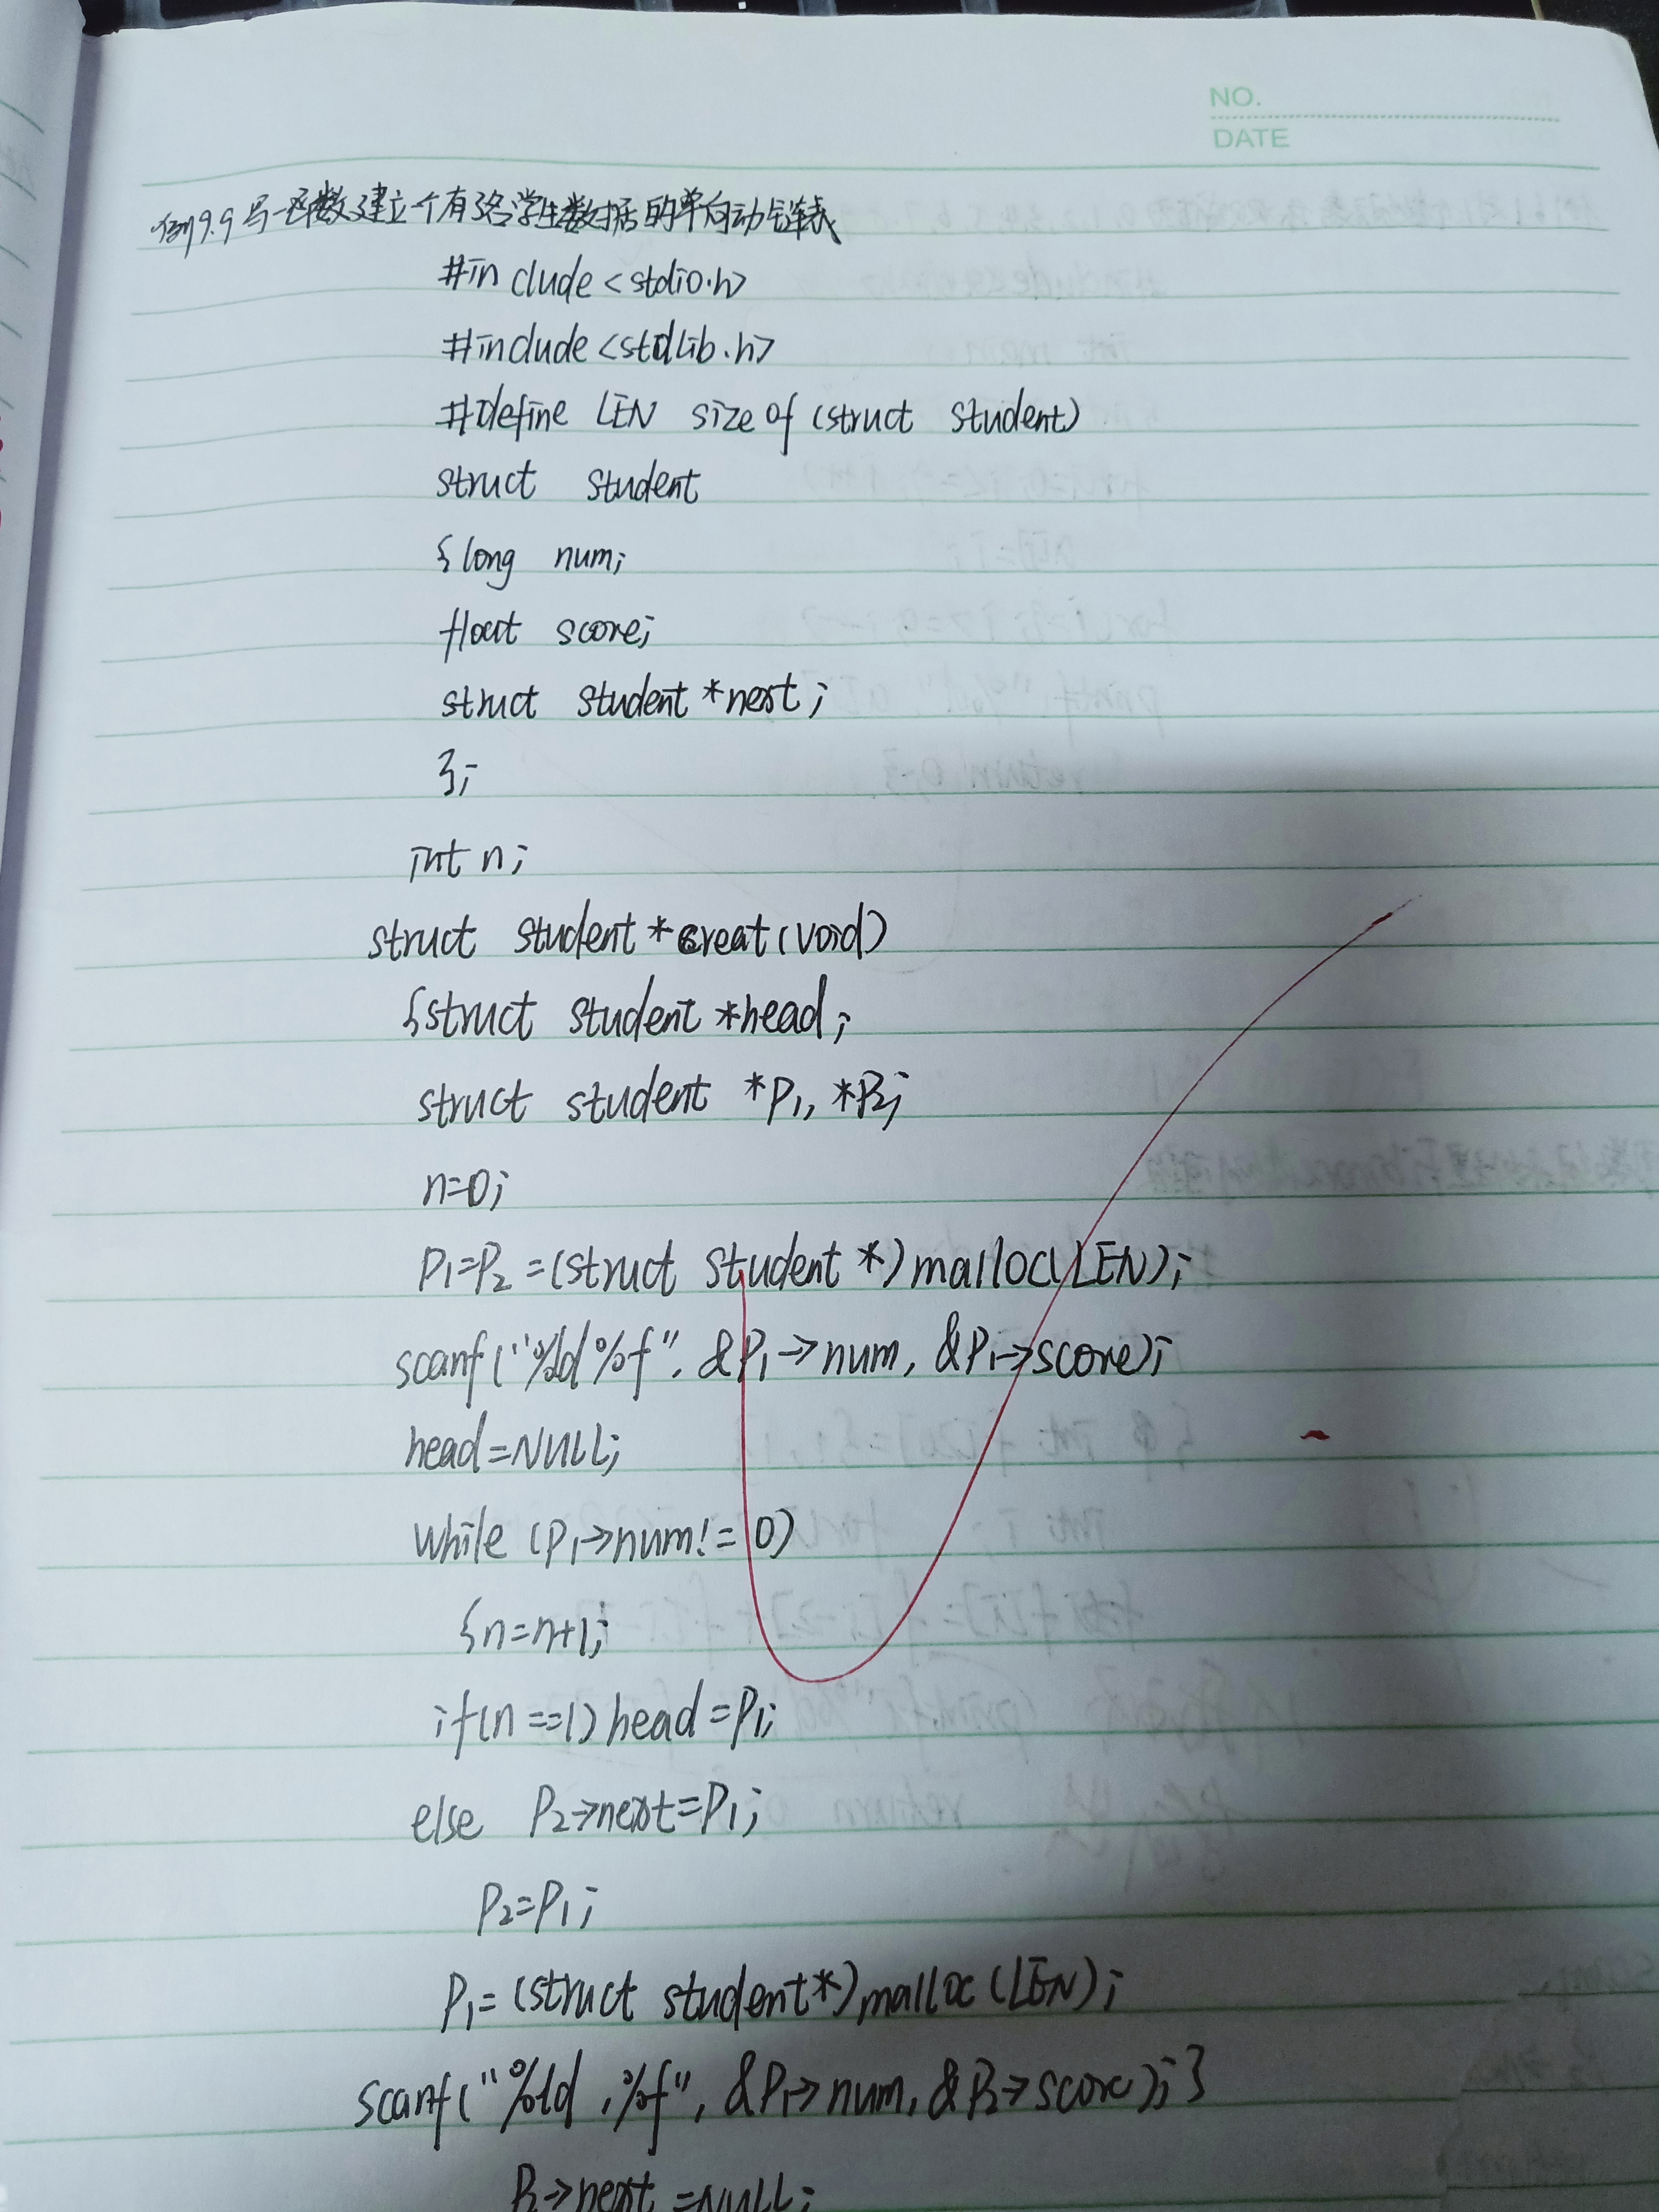 NO.
DATE
例9.9写一函数建立个有3名学生数据的单向动链表
#include<stdio.h>
#include<stdlib.h>
#define LEN sizeof(struct student)
struct student
{long num;
float score;
struct student *next;
};
int n;
struct student *creat(void)
{struct student *head;
struct student *P1, *P2;
n=0;
P1=P2=(struct student *)malloc(LEN);
scanf("%ld%f", &P1->num, &P1->score);
head=NULL;
while (P1->num!=0)
{n=n+1;
if(n==1)head=P1;
else P2->next=P1;
P2=P1;
P1=(struct student*)malloc(LEN);
scanf("%ld,%f", &P1->num, &P2->score);}
P2->next=NULL;